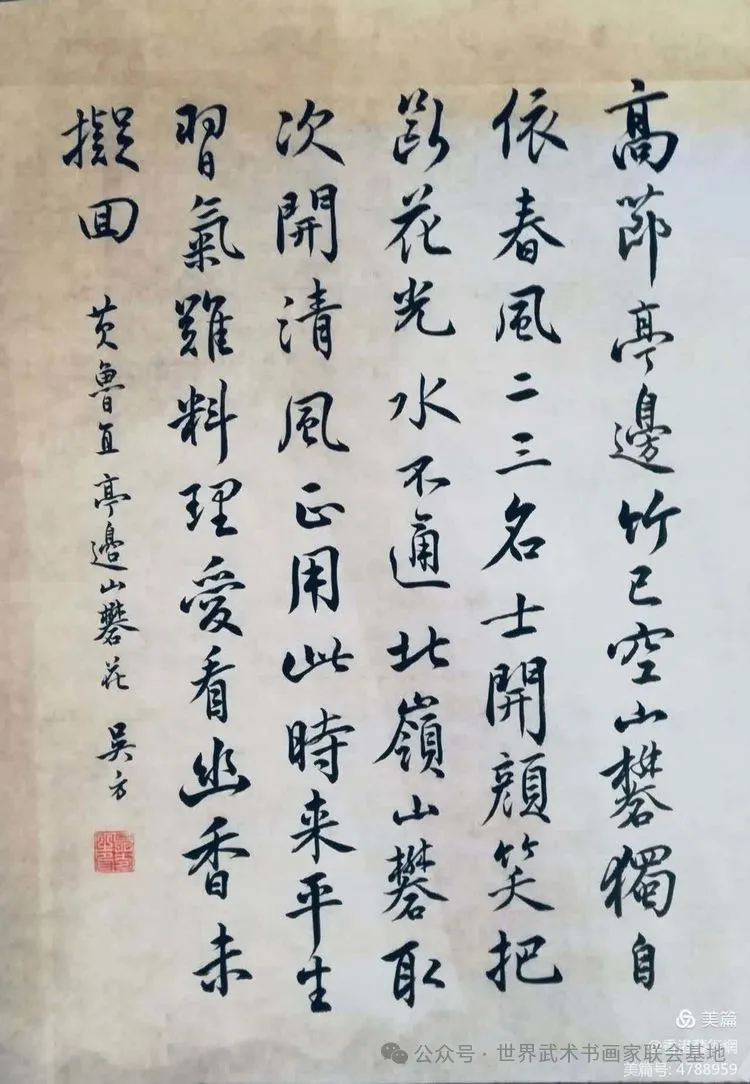 高節亭邊竹已空山礬獨自
依春風二三名士開顔笑把
斷花光水不通北嶺山礬取
次開清風正用此時来平生
習氣難料理愛看幽香未
擬回
黄魯直亭邊山礬花 吴方
美篇
公众号·世界武术书画家联会基地
美篇号: 4788959